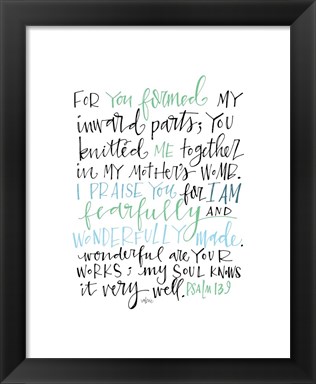 FOR You formed MY
inward parts; you
knitted ME together
in MY MOTHER'S WOMB.
I PRAISE You for I AM
fearfully AND
WONDERFULLY made.
wonderful are YOUR
WORKS; my SOUL KNOWS
it very well. PSALM 139